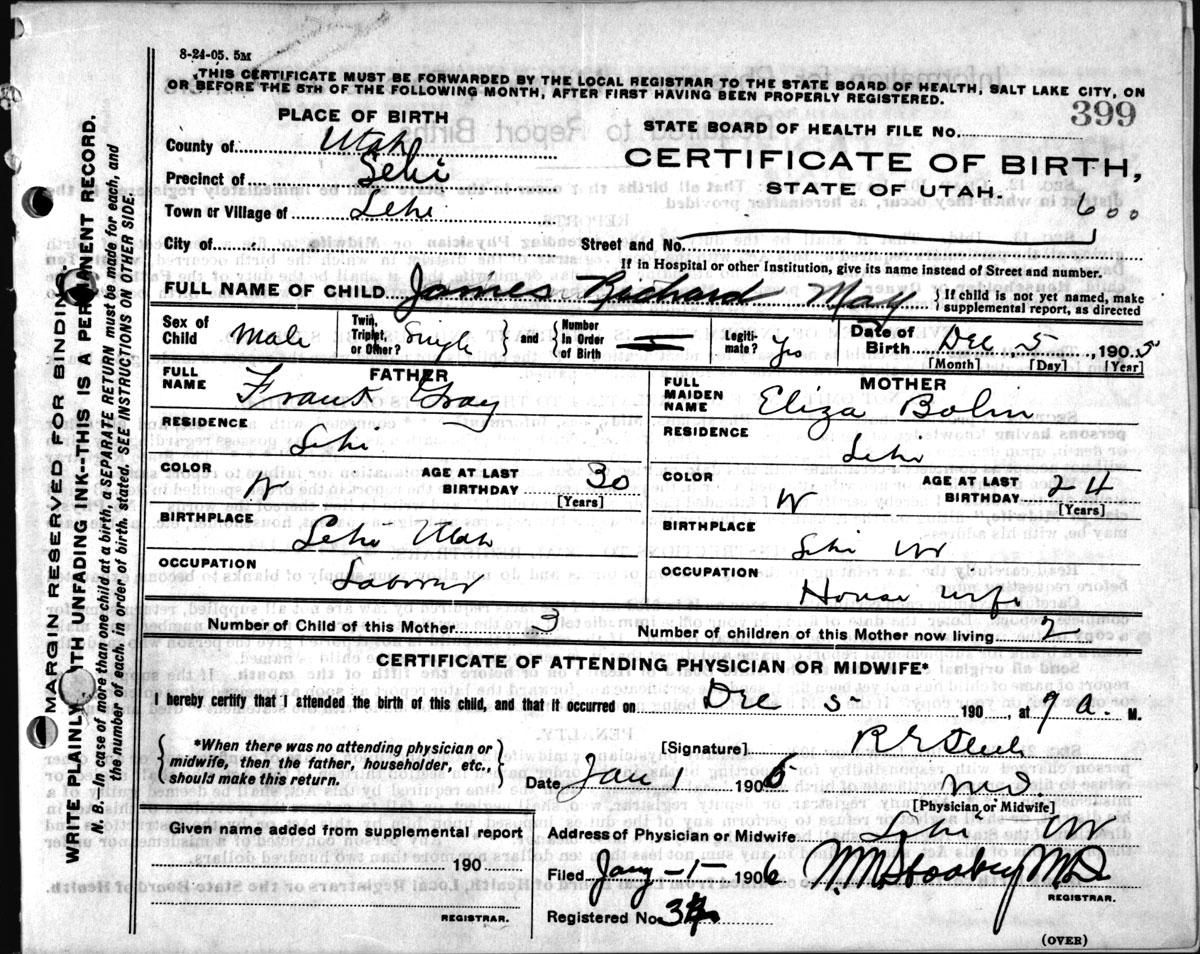 8-24-05. 5M
THIS CERTIFICATE MUST BE FORWARDED BY THE LOCAL REGISTRAR TO THE STATE BOARD OF HEALTH, SALT LAKE CITY, ON
OR BEFORE THE 5TH OF THE FOLLOWING MONTH, AFTER FIRST HAVING BEEN PROPERLY REGISTERED.
PLACE OF BIRTH
399
STATE BOARD OF HEALTH FILE NO.
County of Utah
CERTIFICATE OF BIRTH,
Precinct of Lehi
STATE OF UTAH.
Town or Village of Lehi
600
City of
Street and No.
If in Hospital or other Institution, give its name instead of Street and number.
FULL NAME OF CHILD James Richard May
{If child is not yet named, make
supplemental report, as directed
Sex of Child Male
Twin, Triplet, or Other? Single
{ and } Number In Order of Birth
Legitimate? Yes
Date of Birth Dec 5, 1905
[Month] [Day] [Year]
FATHER
FULL NAME Frank Gray
RESIDENCE
Lehi
COLOR W
AGE AT LAST BIRTHDAY 30
[Years]
BIRTHPLACE
Lehi Utah
OCCUPATION
Laborer
MOTHER
FULL MAIDEN NAME Eliza Bolin
RESIDENCE
Lehi
COLOR W
AGE AT LAST BIRTHDAY 24
[Years]
BIRTHPLACE
Lehi
OCCUPATION
House wife
Number of Child of this Mother 3
Number of children of this Mother now living 2
CERTIFICATE OF ATTENDING PHYSICIAN OR MIDWIFE*
I hereby certify that I attended the birth of this child, and that it occurred on Dec 5, 190 , at 9 a. M.
{*When there was no attending physician or
midwife, then the father, householder, etc.,
should make this return.}
[Signature]
Date Jan 1 1906
MD
[Physician or Midwife]
Given name added from supplemental report
190
REGISTRAR.
Address of Physician or Midwife Lehi
Filed Jany-1-1906
MD
REGISTRAR.
Registered No.
(OVER)
MARGIN RESERVED FOR BINDING
WRITE PLAINLY WITH UNFADING INK--THIS IS A PERMANENT RECORD.
N. B. In case of more than one child at a birth, a SEPARATE RETURN must be made for each, and
the number of each, in order of birth, stated. SEE INSTRUCTIONS ON OTHER SIDE.